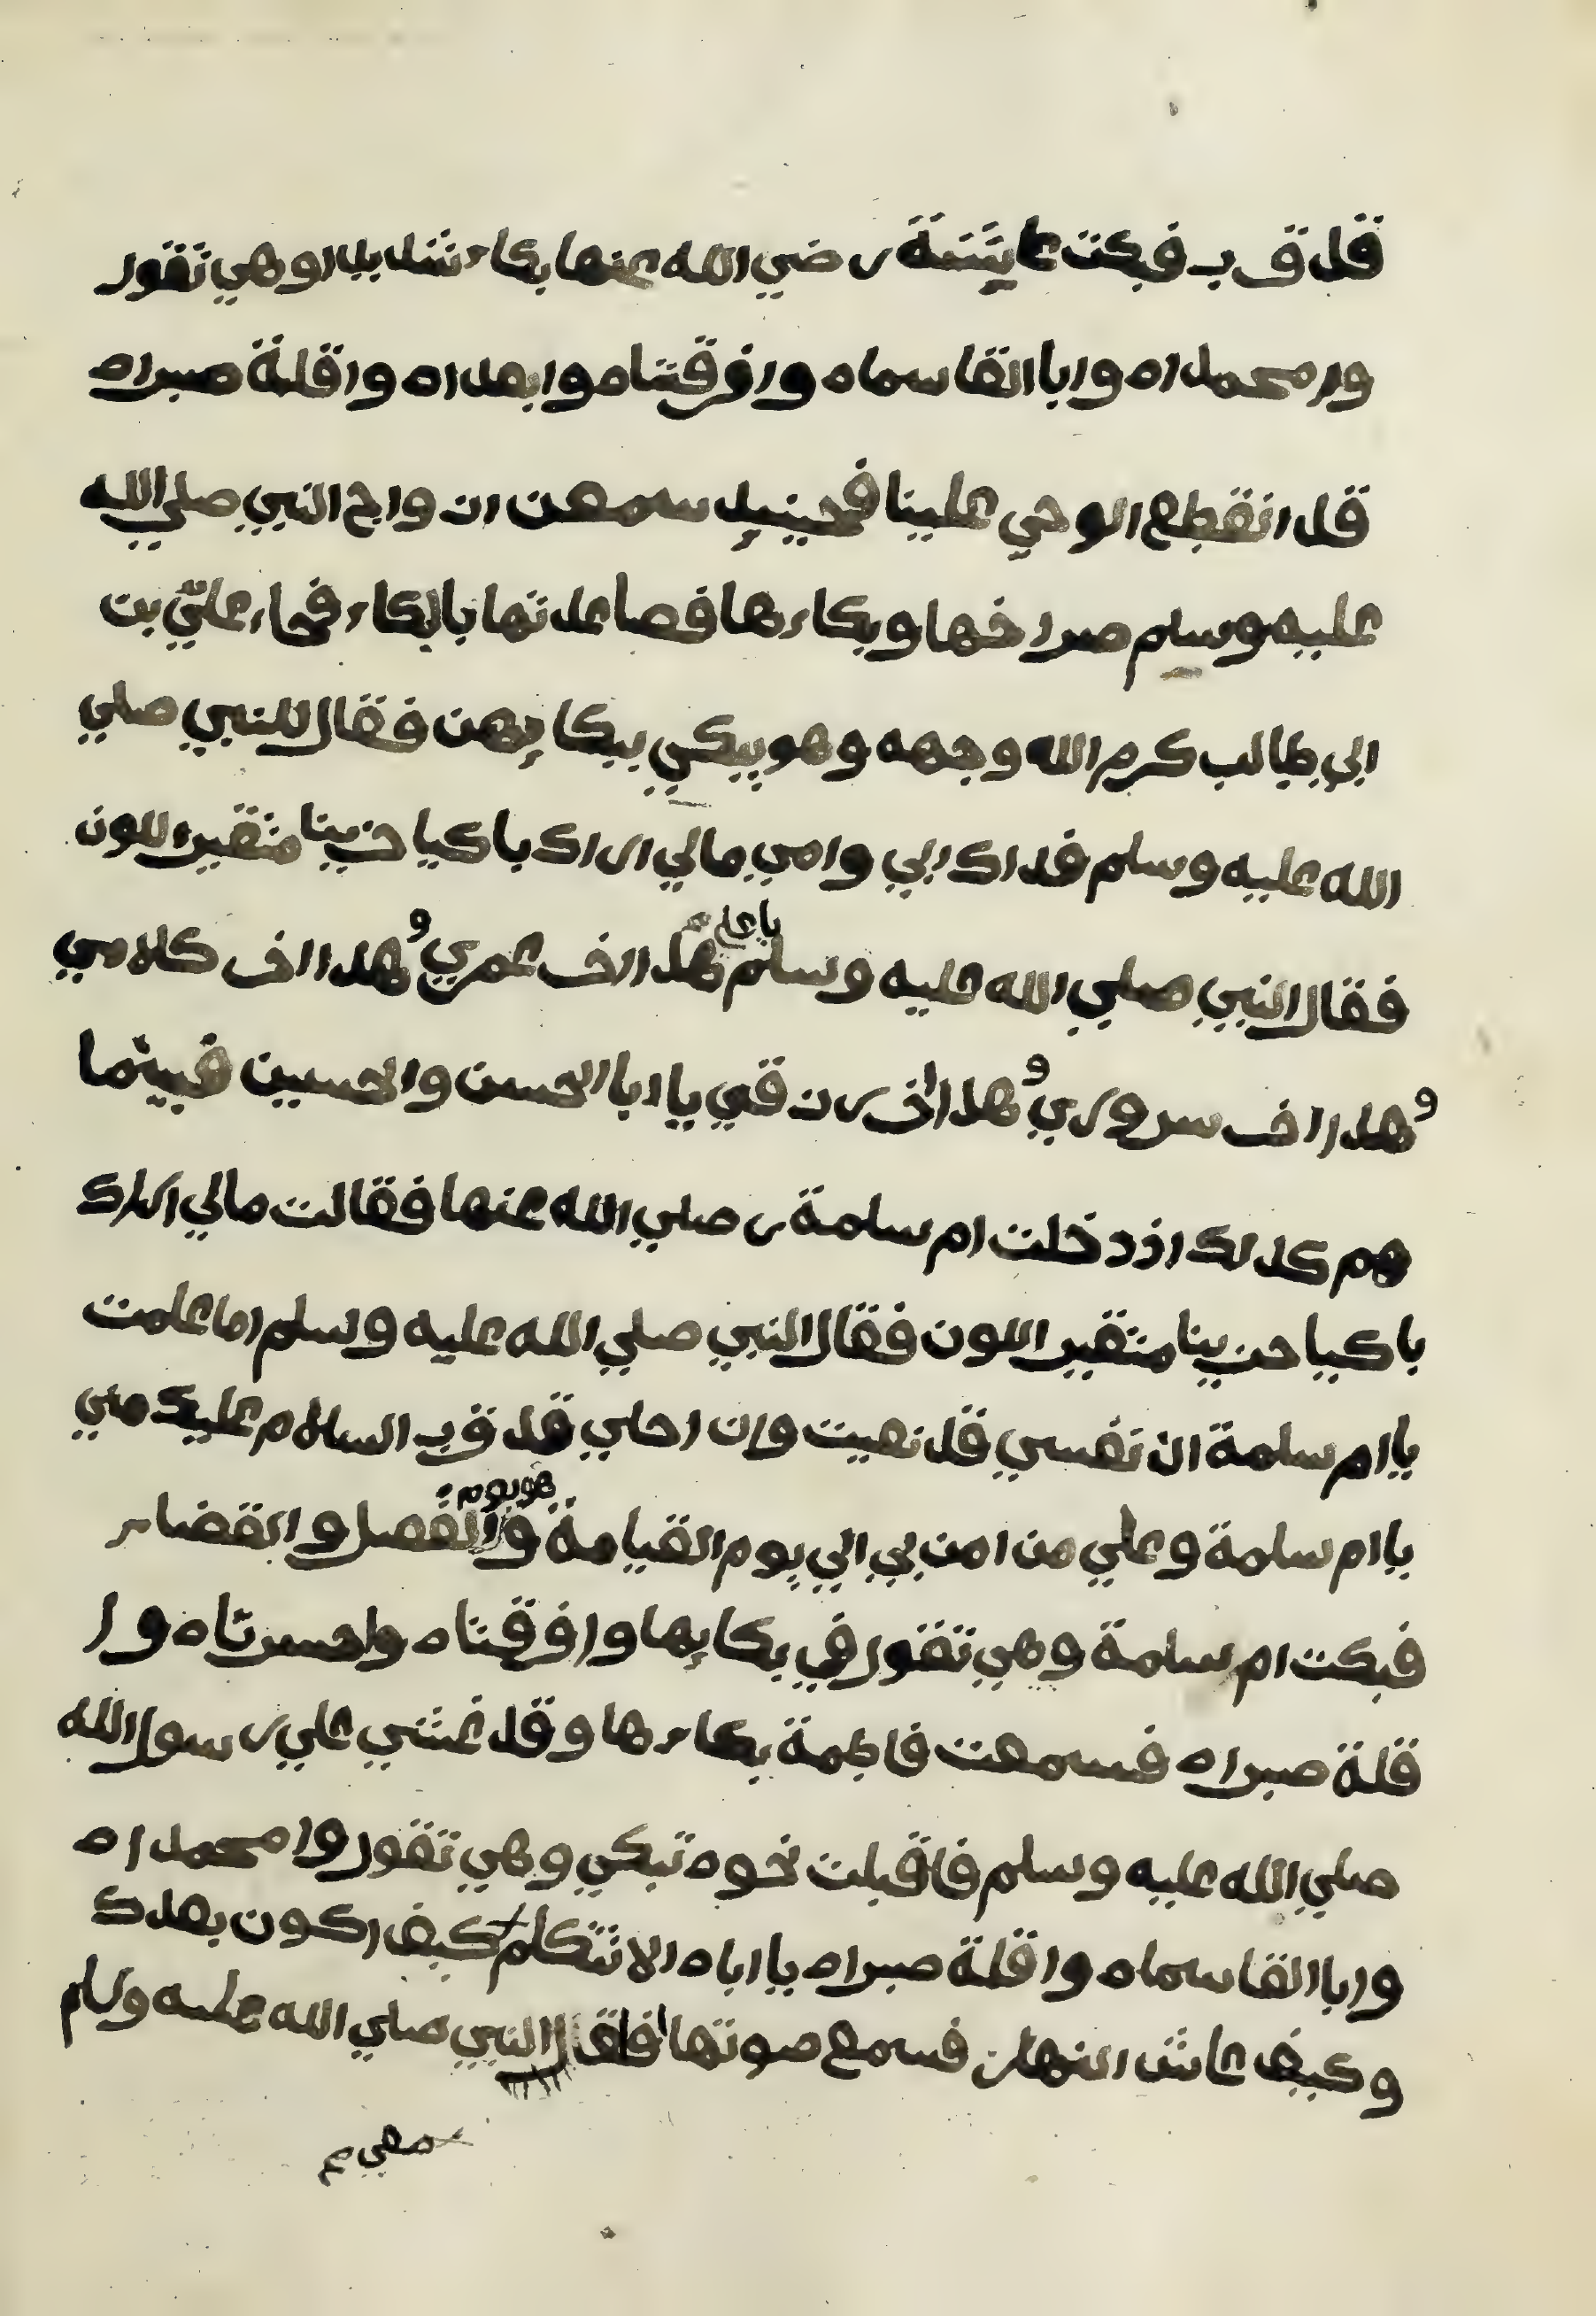 قد قرب فبكت عايشة رضي الله عنها بكاء شديدا وهي تقور
وا محمداه وابا القاسماه وافرقتاه وابعداه واقلة صبراه
قد انقطع الوحي علينا فحينيد سمعن ازواج النبي صلي الله
عليه وسلم صراخها وبكاءها فصاعدتها بالبكاء فجاء عليّ بن
ابي طالب كرم الله وجهه وهو يبكي ببكايهن فقال للنبي صلي
الله عليه وسلم فداك ابي وامي مالي اراك باكيا حزينا متقير اللون
فقال النبي صلي الله عليه وسلم يا علي هدا اخر عمري وهدا اخر كلامي
وهدا اخر سروري وهدا اخر رزقي يا ابا الحسن والحسين فبينما
هم كدلك اذ دخلت ام سلمة رصلي الله عنها فقالت مالي اراك
باكيا حزينا متقير اللون فقال النبي صلي الله عليه وسلم اما علمت
يا ام سلمة ان نفسي قد نعيت وان اجلي قد قرب السلام عليك مني
يا ام سلمة وعلي من امن بي الي يوم القيامة وهو يوم الفصل والقضاء
فبكت ام سلمة وهي تقور في بكايها وافرقتاه واحسرتاه وا
قلة صبراه فسمعت فاطمة بكاءها وقد غشي علي رسول الله
صلي الله عليه وسلم فاقبلت نحوه تبكي وهي تقور وا محمداه
وابا القاسماه واقلة صبراه يا اباه الا تتكلم كيف اكون بعدك
وكيف عاش النهار فسمع صوتها فقال النبي صلي الله عليه وسلم
معي